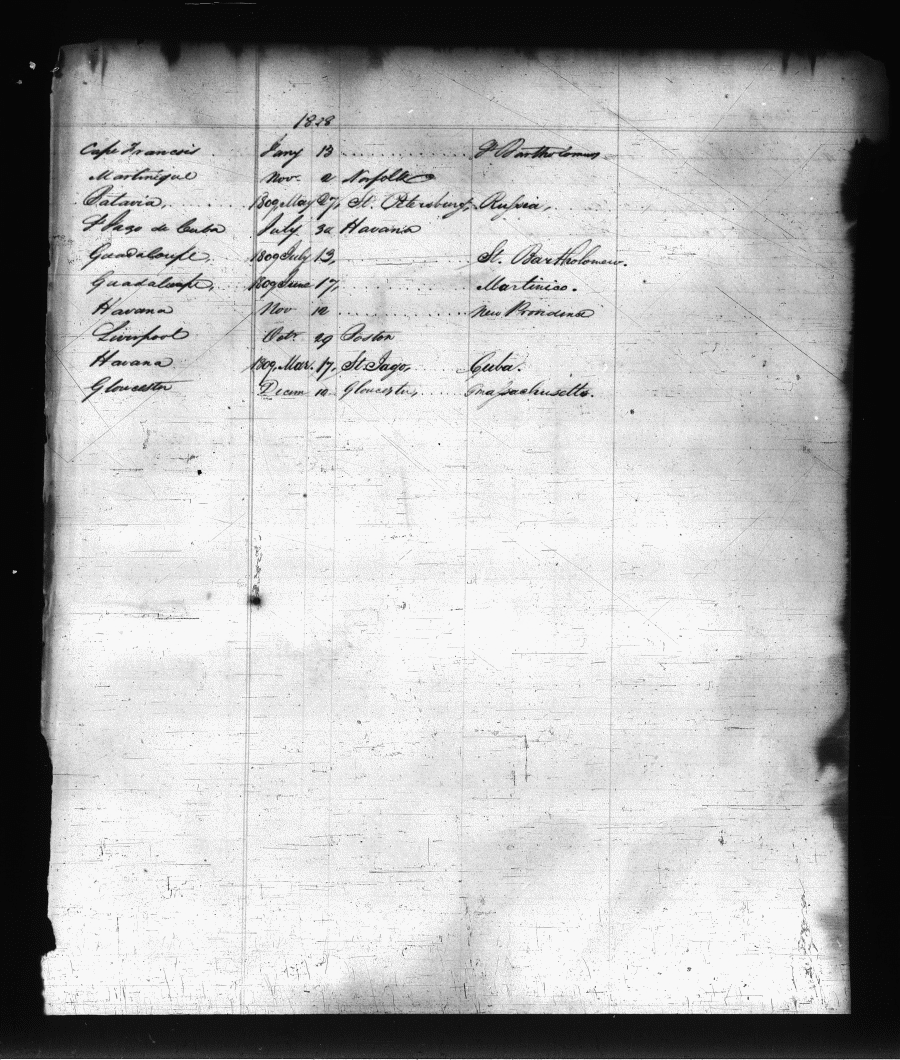 1828
Cape Francois Jany 13 St Bartholomews
Martinique Nov. 2 Norfolk
Batavia, 1809 May 27, St. Petersburg, Russia,
St Jago de Cuba July 30 Havana
Guadaloupe, 1809 July 13, St. Bartholomew.
Guadaloupe, 1809 June 17, Martinico.
Havana Nov 12 New Providence
Liverpool Octr. 29 Boston
Havana 1809 Mar. 17, St. Jago, Cuba.
Gloucester Decem 12 Gloucester, Massachusetts.